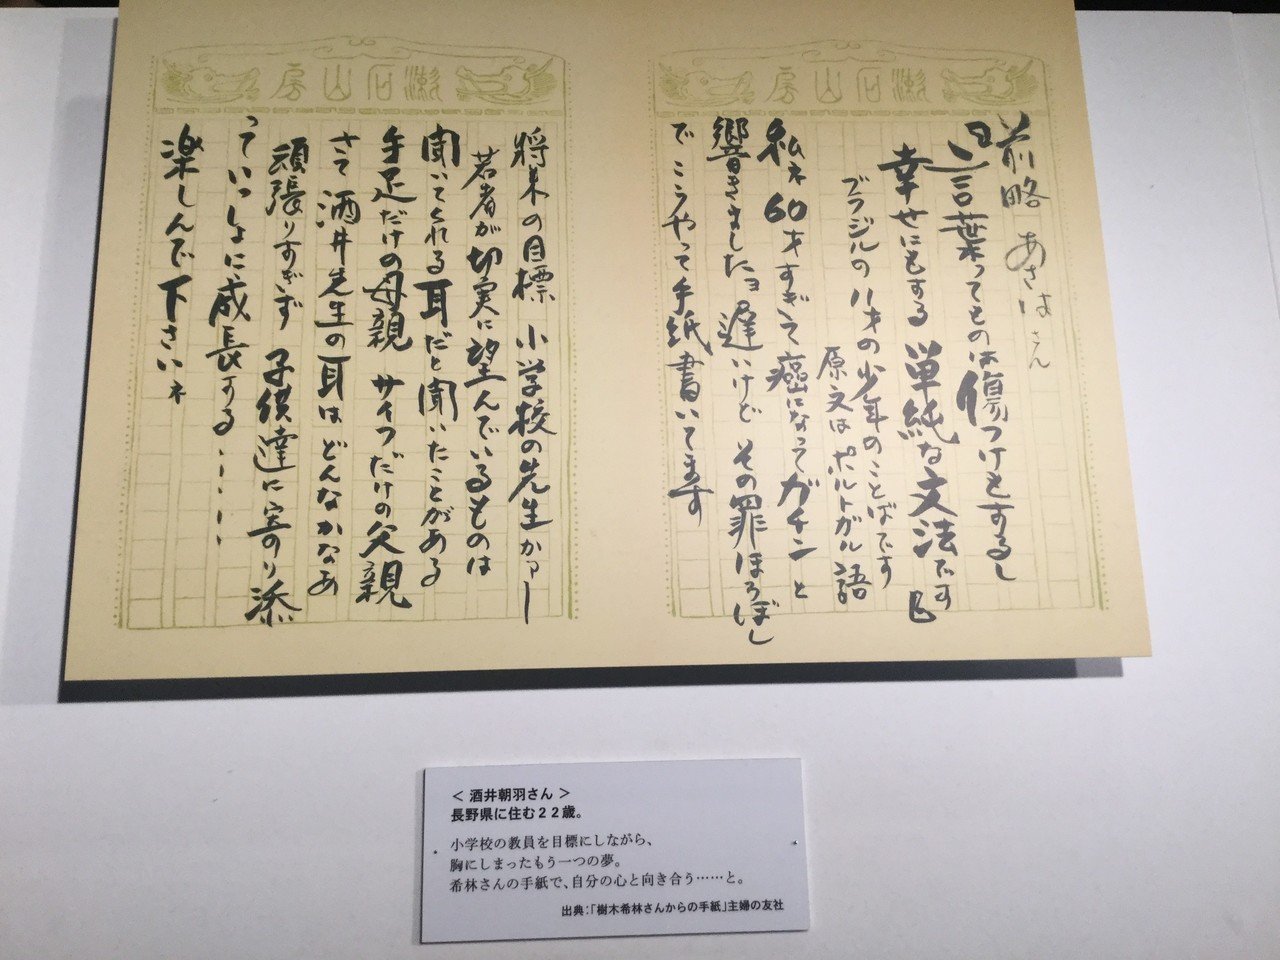 漱石山房
前略 あさは さん
『言葉ってものは傷つけもするし
幸せにもする 単純な文法です』
ブラジルの11才の少年のことばです
原文は ポルトガル語
私ネ 60才すぎて癌になってガチンと
響きましたョ 遅いけど その罪ほろぼし
で こうやって手紙書いてます
漱石山房
将来の目標 小学校の先生かァー
若者が切実に望んでいるものは
聞いてくれる耳だと聞いたことがある
手足だけの母親 サイフだけの父親
さて 酒井先生の耳は どんなかなあ
頑張りすぎず 子供達に寄り添
っていっしょに成長する……
楽しんで下さいネ
＜酒井朝羽さん＞
長野県に住む22歳。
小学校の教員を目標にしながら、
胸にしまったもう一つの夢。
希林さんの手紙で、自分の心と向き合う……と。
出典：「樹木希林さんからの手紙」主婦の友社